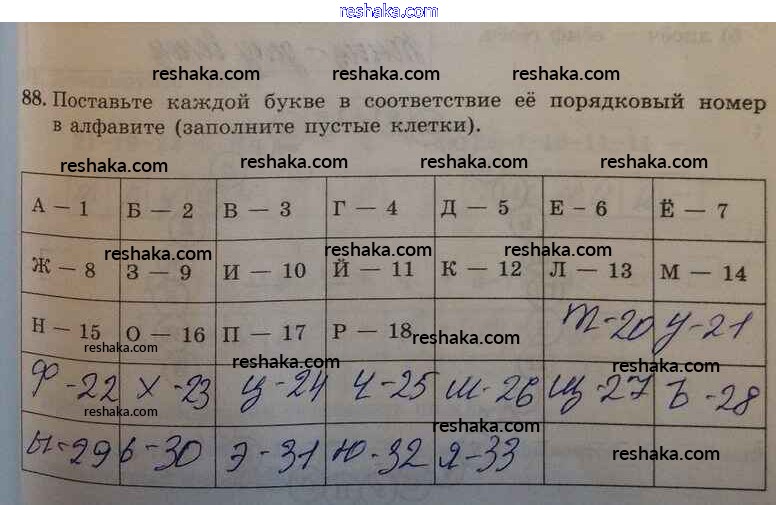 reshaka.com
reshaka.com reshaka.com reshaka.com
88. Поставьте каждой букве в соответствие её порядковый номер
reshaka.com reshaka.com
в алфавите (заполните пустые клетки).
reshaka.com reshaka.com reshaka.com reshaka.com
А — 1 Б — 2 В — 3 Г — 4 Д — 5 Е – 6 Ё — 7
reshaka.com reshaka.com reshaka.com
Ж — 8 З — 9 И — 10 Й — 11 К — 12 Л — 13 М — 14
reshaka.com reshaka.com
Н — 15 О — 16 П — 17 Р — 18 Т-20 У-21
reshaka.com reshaka.com reshaka.com reshaka.com
Ф-22 Х-23 Ц-24 Ч-25 Ш-26 Щ-27 Ъ-28
reshaka.com reshaka.com reshaka.com
Ы-29 Ь-30 Э-31 Ю-32 Я-33
reshaka.com reshaka.com reshaka.com
reshaka.com